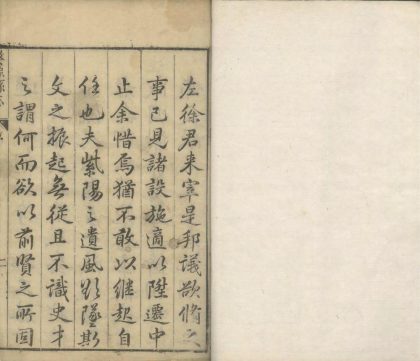 左徐君来宰是邦議欲脩之
事已見諸設施適以陞遷中
止余惜焉猶不敢以继起自
任也夫紫陽之遺風欵墜斯
文之振起無從且不識史才
之謂何而欲以前賢之所固